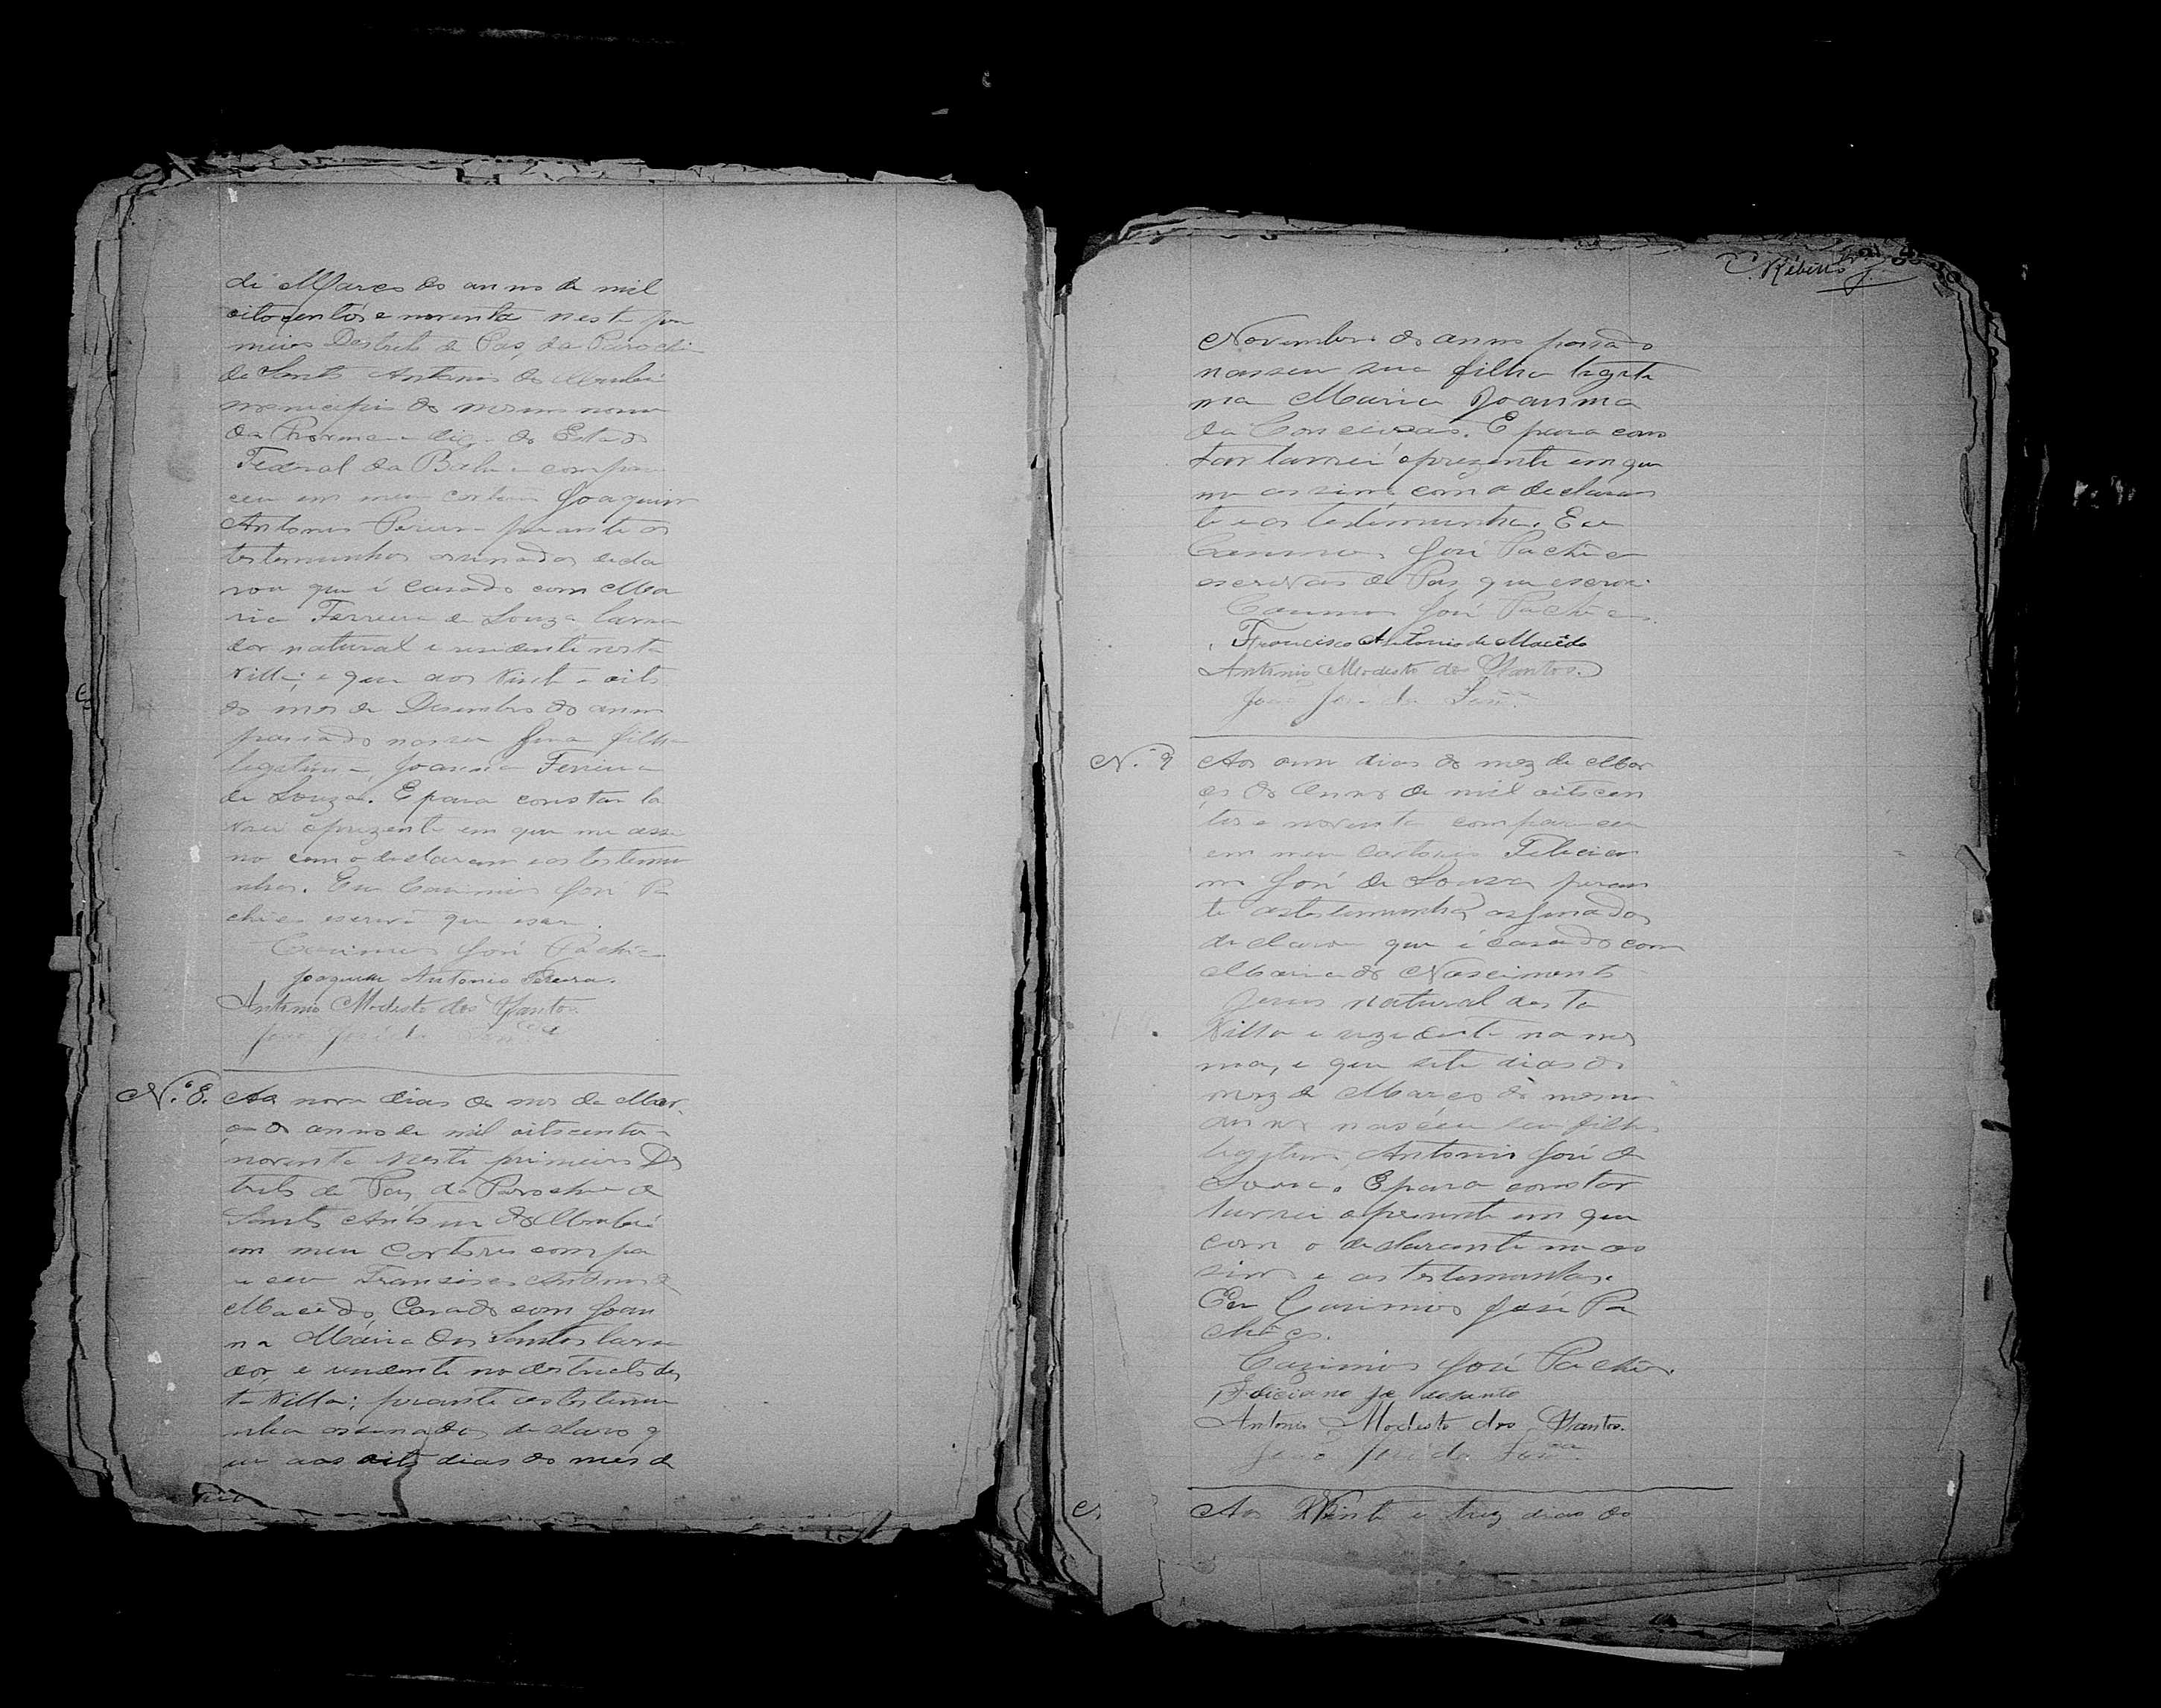 de Março do anno de mil
oitocentos e noventa neste pri
meiro Destrito de Paz, da Parochia
de Santo Antonio do
municipio do mesmo nome
da digo do Estado
Federal da Bahia compare
ceu em meu cartorio Joaquim
Antonio Pereira perante as
testemunhas assinadas decla
rou que é casado com Ma
ria Ferreira de Souza lavra
dor natural e residente nesta
Villa; e que aos Vinte e oito
do mes de Desembro do anno
passado nasceu sua filha
legitima Joanna Ferreira
de Souza. E para constar la
vrei o prezente em que me assi
no com o declarante e as testemu
nhas. Eu Casimiro José Pa
checo escrivão que escrevi.
Casimiro José Pacheco
Joaquim Antonio Pereira.
Antonio Modesto dos Santos.
João José de
N.º 8. Aos nove dias do mes de Mar
ço do anno de mil oitocentos e
noventa neste primeiro Des
trito de Paz da Parochia de
Santo Antonio do
em meu Cartorio compa
receu Francisco Antonio de
Macêdo, Casado com Joan
na Maria dos Santos lavra
dor, e residente no destricto des
ta Villa; perante as testemu
nhas assinadas declarou q
ue aos oito dias do mes de
C. Ribeiro
Novembro do anno passado
nasceu sua filha legiti
ma Maria Joanna
da Conceicão. E para cons
tar lavrei o prezente em que
me assino com o declaran
te e as testemunhas. Eu
Casimiro José Pacheco
escrivão de Paz que escrevi.
Casimiro José Pacheco
Francisco Antonio de Macêdo
Antonio Modesto dos Santos.
João José de
N.º 9 Aos onze dias do mez de Mar
ço do Anno de mil oitocen
tos e noventa compareceu
em meu Cartorio Felicia
no José de Souza peran
te as testemunhas assinadas
declarou que é casado com
Maria do Nascimento
Jesus natural desta
Villa e rezidente na mes
ma, e que sete dias do
mez de Março do mesmo
anno nascêu seu filho
legitimo Antonio José de
Souza. E para constar
lavrei o presente em que
com o declarante me as
sino e as testemunhas.
Eu Casimiro José Pa
checo.
Cazimiro José Pacheco.
Feliciano
Antonio Modesto dos Santos.
João José de
Aos Vinte e trez dias do